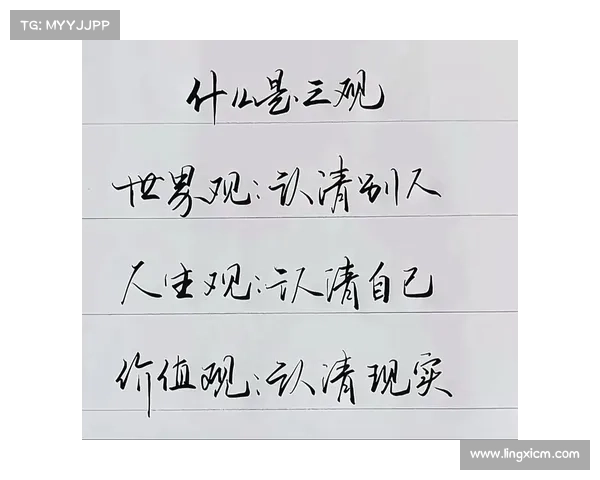 TG: MYYJJPP
什么是三观
世界观:认清别人
人生观:认清自己
价值观:认清现实
www.lingxicm.com